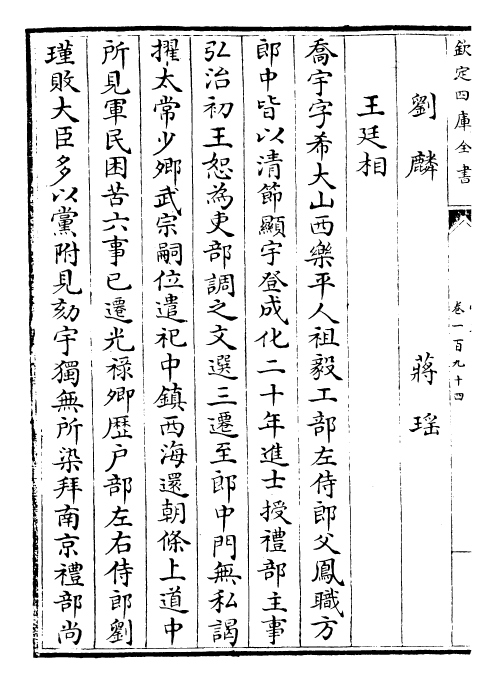 欽定四庫全書
卷一百九十四
劉麟 蔣瑶
王廷相
喬宇字希大山西樂平人祖毅工部左侍郎父鳳職方
郎中皆以清節顯宇登成化二十年進士授禮部主事
弘治初王恕為吏部調之文選三遷至郎中門無私謁
擢太常少卿武宗嗣位遣祀中鎮西海還朝條上道中
所見軍民困苦六事已遷光禄卿歴户部左右侍郎劉
瑾敗大臣多以黨附見劾宇獨無所染拜南京禮部尚